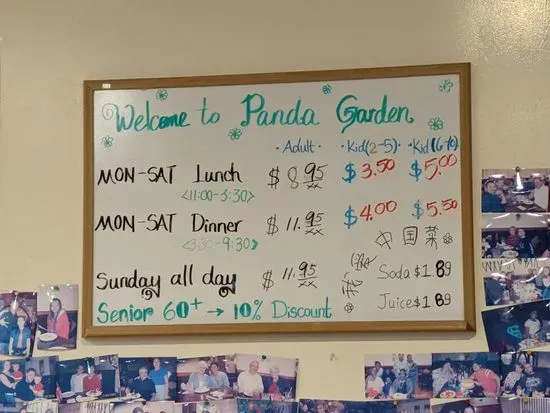 Welcome to Panda Garden
·Adult· ·Kid(2-5)· ·Kid(6-10)
MON-SAT Lunch $8.95 $3.50 $5.00
<11:00-3:30>
MON-SAT Dinner $11.95 $4.00 $5.50
<3:30-9:30>
中国菜
Sunday all day $11.95
Soda $1.89
Juice $1.89
Senior 60+ → 10% Discount